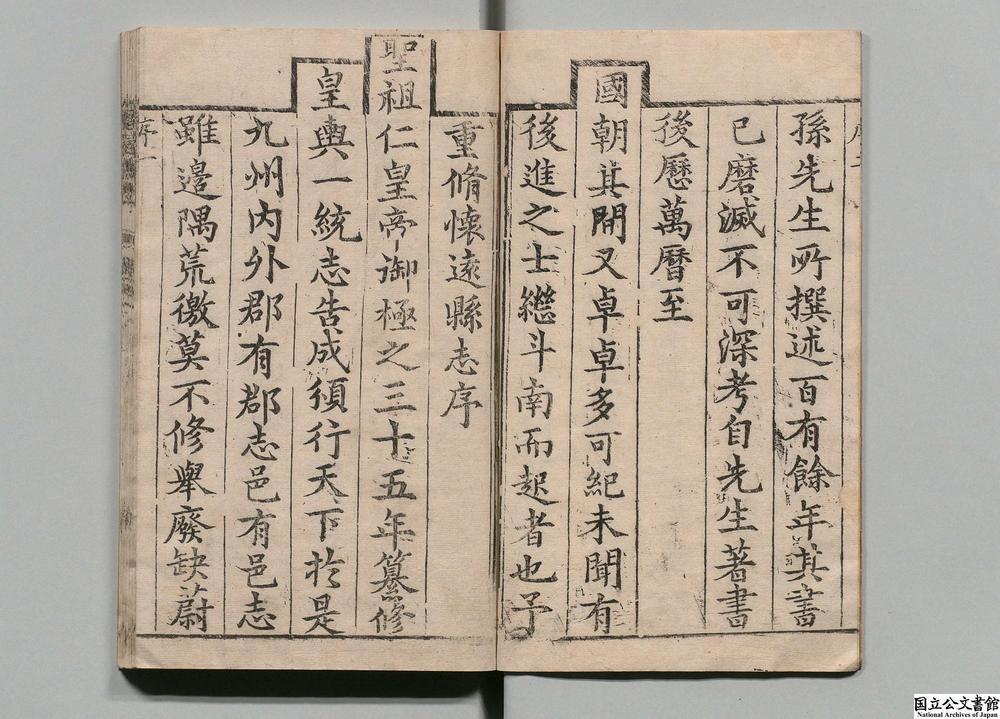 孫先生所撰述百有餘年其書
已磨滅不可深考自先生著書
後歷萬曆至
國朝其間又卓卓多可紀未聞有
後進之士繼斗南而起者也予
重脩懷遠縣志序
聖祖仁皇帝御極之三十五年纂修
皇輿一統志告成須行天下於是
九州内外郡有郡志邑有邑志
雖邉隅荒徼莫不修舉廢缺蔚
序一
国立公文書館
National Archives of Japan